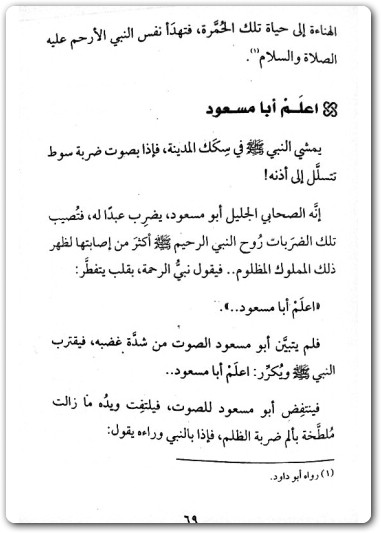 الهناءة إلى حياة تلك الحُمَّرة، فتهدَأ نفس النبي الأرحم عليه
الصلاة والسلام(١).
اعلَمْ أبا مسعود
يمشي النبي ﷺ في سِكَك المدينة، فإذا بصوت ضربة سوط
تتسلَّل إلى أذنه!
إنَّه الصحابي الجليل أبو مسعود، يضرِب عبدًا له، فتُصيب
تلك الضرَبات رُوح النبي الرحيم ﷺ أكثرَ من إصابتها لظهر
ذلك المملوك المظلوم.. فيقول نبيُّ الرحمة، بقلب يتفطَّر:
«اعلَمْ أبا مسعود..».
فلم يتبيَّن أبو مسعود الصوت من شدَّة غضبه، فيقترب
النبي ﷺ ويُكرِّر: اعلَمْ أبا مسعود..
فينتفِض أبو مسعود للصوت، فيلتفِت ويدُه ما زالت
مُلطَّخة بألم ضربة الظلم، فإذا بالنبي وراءه يقول:
(١) رواه أبو داود.
٦٩